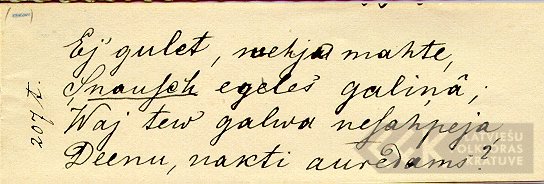 Ej gulet, wehja mahte,
Snausch egeles galiņâ;
Waj tew galwa nesahpeja,
Deenu, nakti auredams?
207 t.
LATVIEŠU
FOLKLORAS
KRĀTUVE